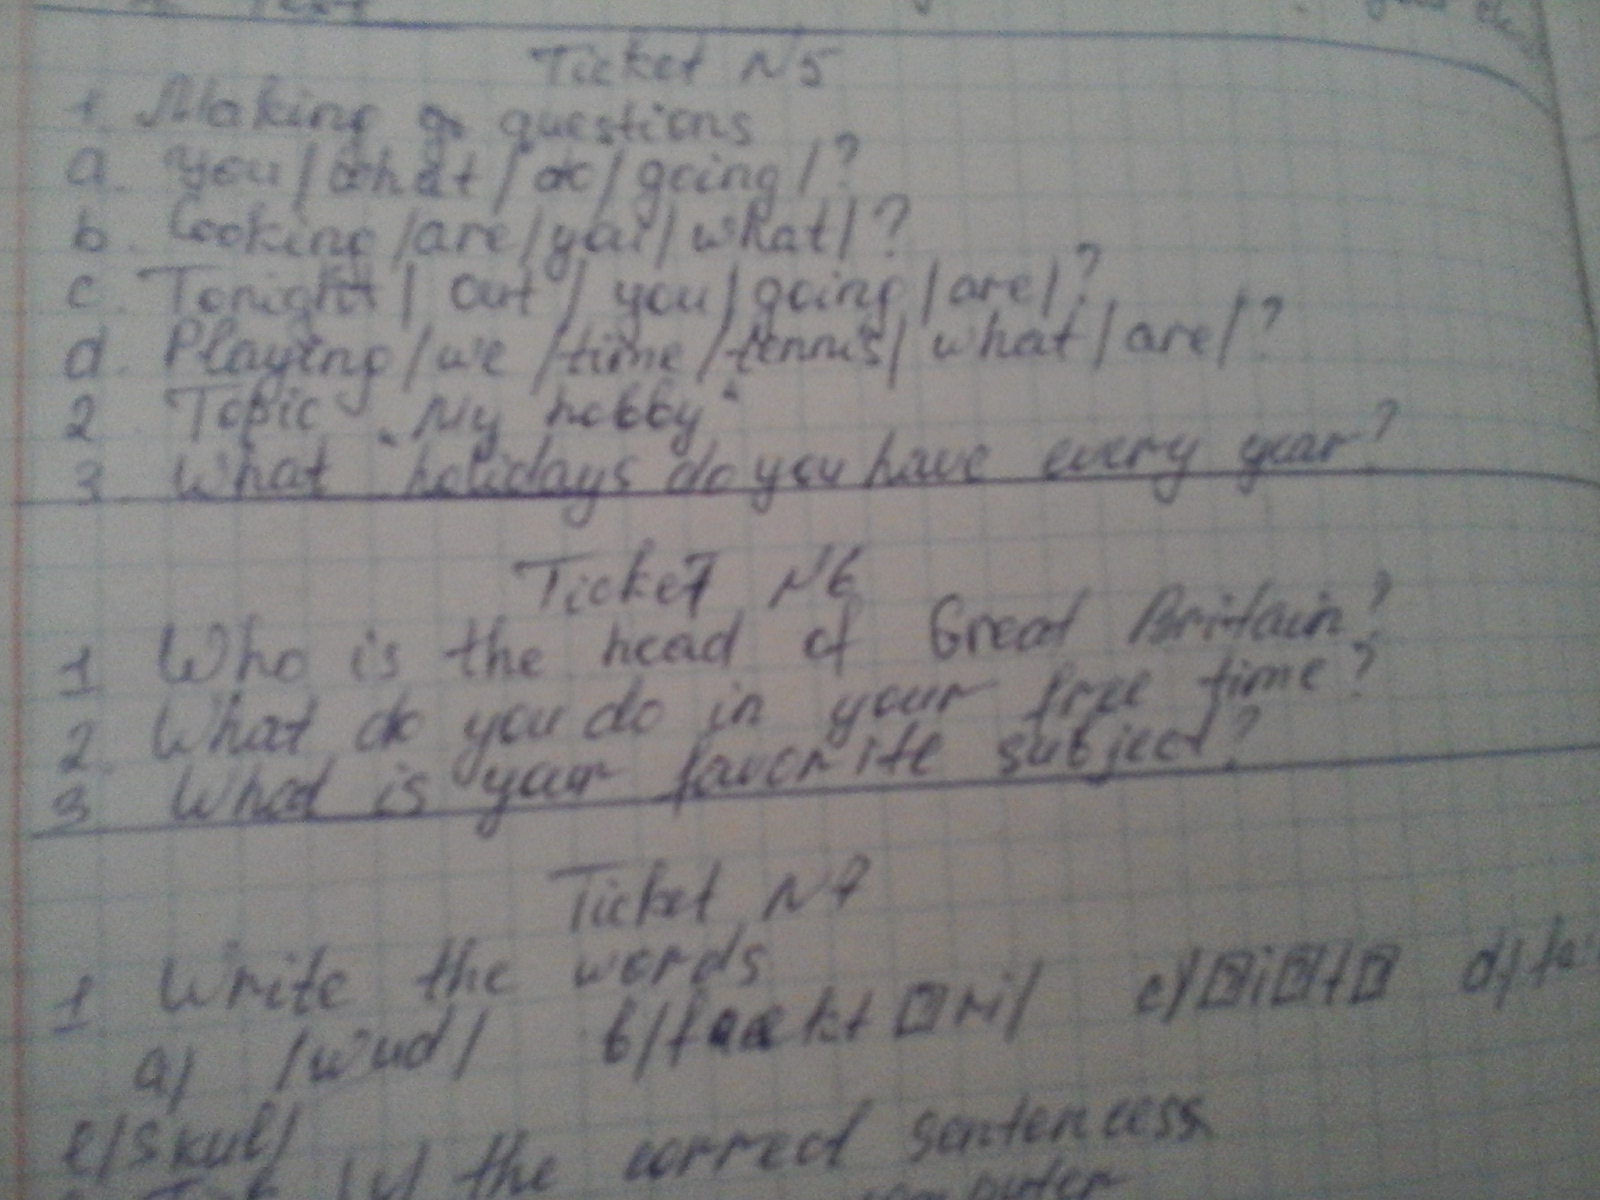 Ticket N5
1. Making questions
a. You / what / do / going / ?
b. Cooking / are / you / what / ?
c. Tonight / out / you / going / are / ?
d. Playing / we / time / tennis / what / are / ?
2 Topic "My hobby"
3 What holidays do you have every year?
Ticket N6
1 Who is the head of Great Britain?
2. What do you do in your free time?
3 What is your favorite subject?
Ticket N7
1 Write the words
a) /wud/ b) /faekt□ri/ c) □i□t□ d)
e) /skul/
(v) the correct sentencess
computer